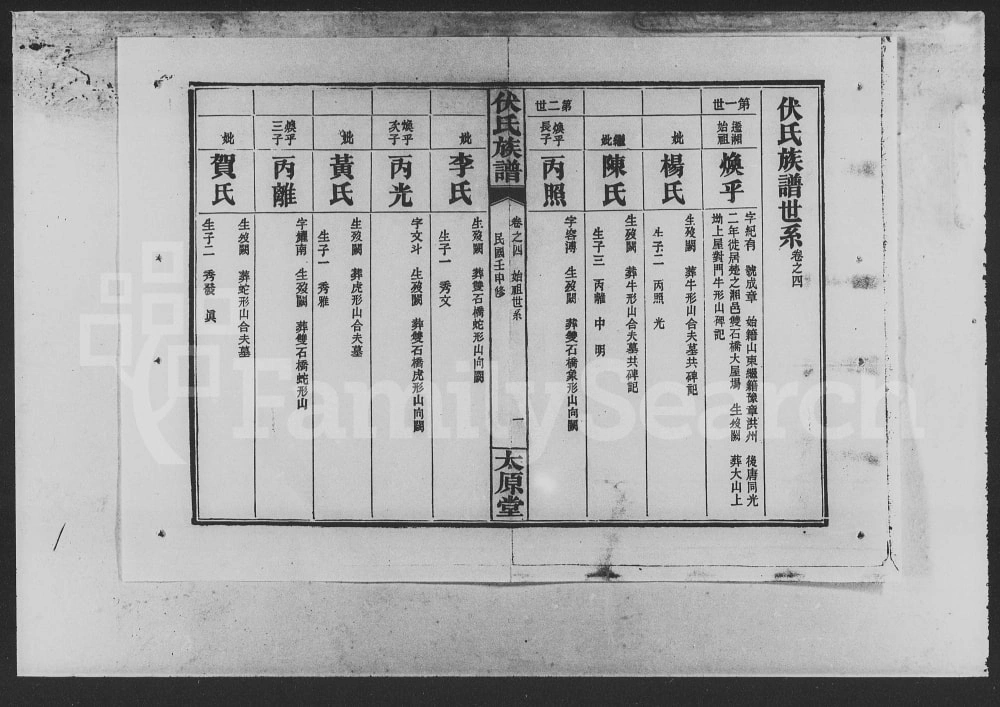 伏氏族譜世系 卷之四
第一世
遷湘始祖
煥乎
字紀有 號成章 始籍山東繼籍豫章洪州 後唐同光
二年徙居楚之湘邑雙石橋大屋場 生歿闕 葬大山上
坳上屋對門牛形山碑記
妣
楊氏
生歿闕 葬牛形山合夫墓共碑記
生子二 丙照 光
繼妣
陳氏
生歿闕 葬牛形山合夫墓共碑記
生子三 丙離 中 明
第二世
煥乎長子
丙照
字容溥 生歿闕 葬雙石橋象形山向闕
伏氏族譜
卷之四 始祖世系
一
民國壬申修
太原堂
妣
李氏
生歿闕 葬雙石橋蛇形山向闕
生子一 秀文
煥乎次子
丙光
字文斗 生歿闕 葬雙石橋虎形山向闕
妣
黃氏
生歿闕 葬虎形山合夫墓
生子一 秀雅
煥乎三子
丙離
字耀南 生歿闕 葬雙石橋蛇形山
妣
賀氏
生歿闕 葬蛇形山合夫墓
生子二 秀發 眞
FamilySearch